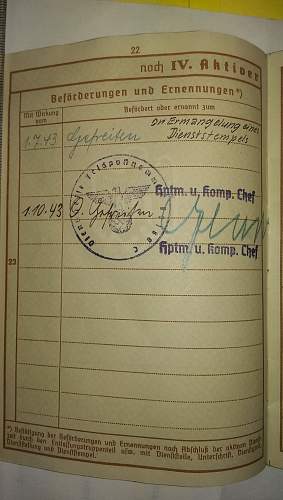 22
noch IV. Aktiver
Beförderungen und Ernennungen*)
Mit Wirkung vom
Befördert oder ernannt zum
1.7.43 Gefreiten
In Ermangelung eines
Dienststempels
Hptm. u. Komp. Chef
1.10.43 O. Gefreiten
Hptm. u. Komp. Chef
23
*) Bestätigung der Beförderungen und Ernennungen nach Abschluß der aktiven
zeit durch den Entlassungstruppenteil usw. mit Dienststelle, Unterschrift,
Dienststellung und Dienststempel.